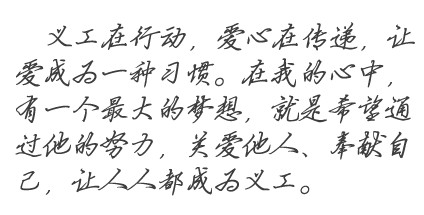 义工在行动，爱心在传递，让
爱成为一种习惯。在我的心中，
有一个最大的梦想，就是希望通
过他的努力，关爱他人、奉献自
己，让人人都成为义工。